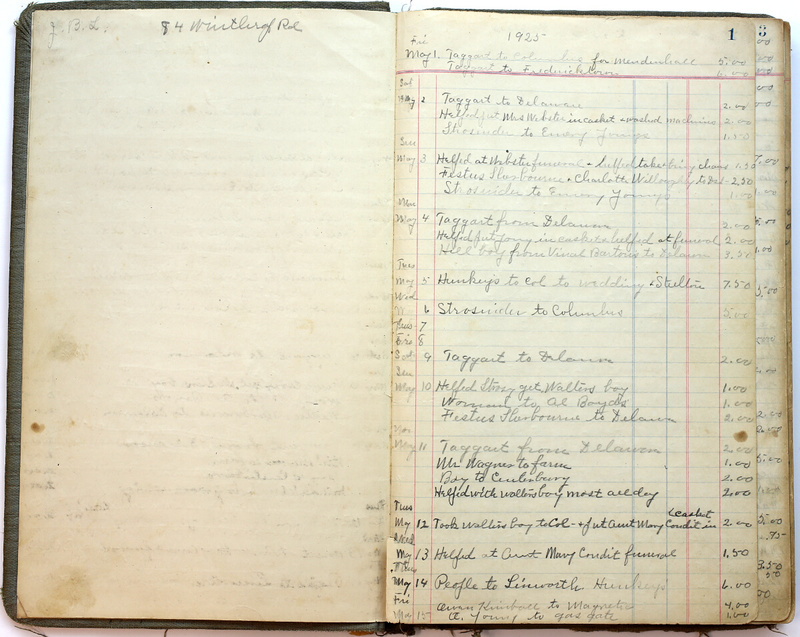 J. B. L. 84 Winthrop Rd
1 3
1925
Fri
May 1. Taggart to Columbus for Mendenhall 5.00
Taggart to Fredricktown 6.00
Sat
May 2 Taggart to Delaware 2.00
Helped put Mrs Webster in casket + washed machine 2.00
Strosnider to Emery Youngs 1.50
Sun
May 3 Helped at Webster funeral + helped take + bring chairs 1.50
Festus Harbourne + Charlotte Willoughby to Del 2.50
Strosnider to Emery Youngs 1.00
Mon
May 4 Taggart from Delawn 2.00
Helped put Tony in casket + helped at funeral 2.00
Hell boy from Bartons to Delawn 3.50
Tues
May 5 Hunkeys to Col to wedding + 7.50
Wed
6 Strosnider to Columbus 5.00
Thus 7
Fri 8
Sat 9 Taggart to Delawn 2.00
Sun
May 10 Helped get Walters boy 1.00
Woman to Al Boyds 1.00
Festus Harbourne to Delawn 2.00
Mon
May 11 Taggart from Delawon 2.00
Mr Wagner to farm 1.00
Boy to Centerburg 2.00
Helped with Walters boy most all day 2.00
Tues casket
May 12 Took Walters boy to Col - + put Aunt Mary Condit in 2.00
Wed
May 13 Helped at Aunt Mary Condit funeral 1.50
May 14 People to Linworth Hunkeys 6.00
Fri
Kimball to Magnetic 4.00
May 15 A. Young to gas gate 1.00